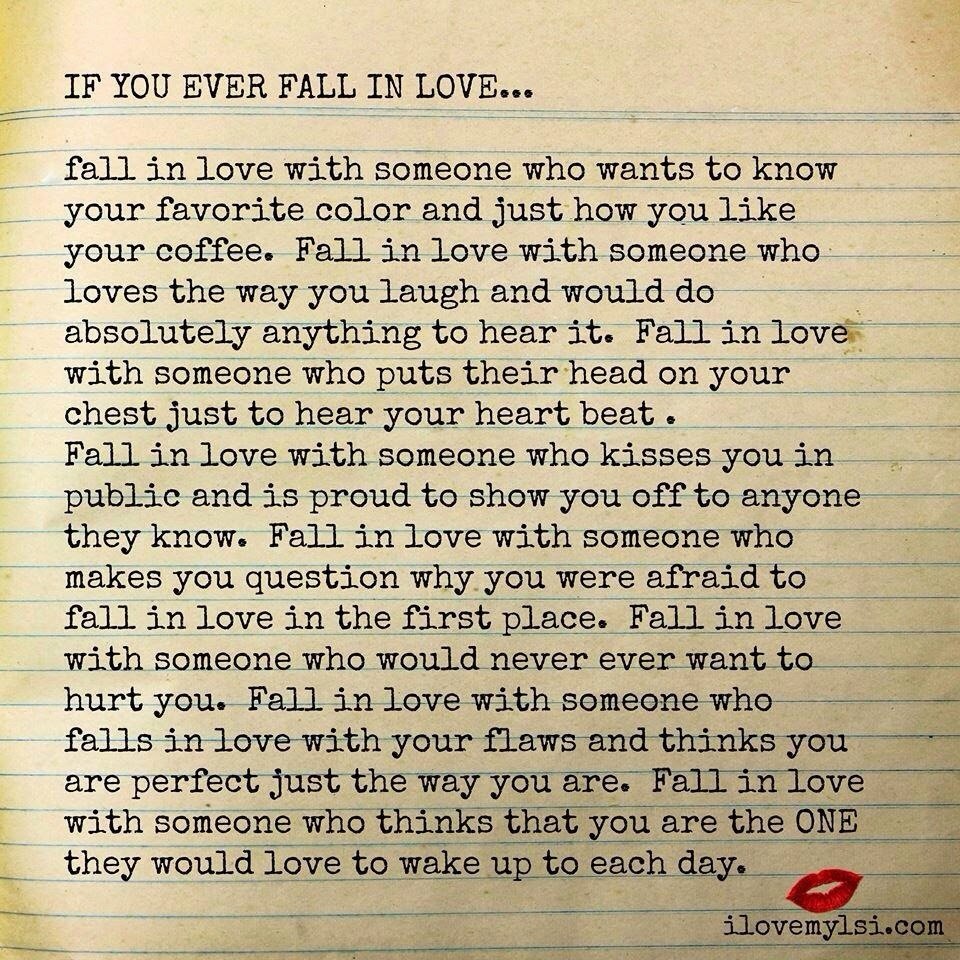 IF YOU EVER FALL IN LOVE...
fall in love with someone who wants to know
your favorite color and just how you like
your coffee. Fall in love with someone who
loves the way you laugh and would do
absolutely anything to hear it. Fall in love
with someone who puts their head on your
chest just to hear your heart beat .
Fall in love with someone who kisses you in
public and is proud to show you off to anyone
they know. Fall in love with someone who
makes you question why you were afraid to
fall in love in the first place. Fall in love
with someone who would never ever want to
hurt you. Fall in love with someone who
falls in love with your flaws and thinks you
are perfect just the way you are. Fall in love
with someone who thinks that you are the ONE
they would love to wake up to each day.
ilovemylsi.com